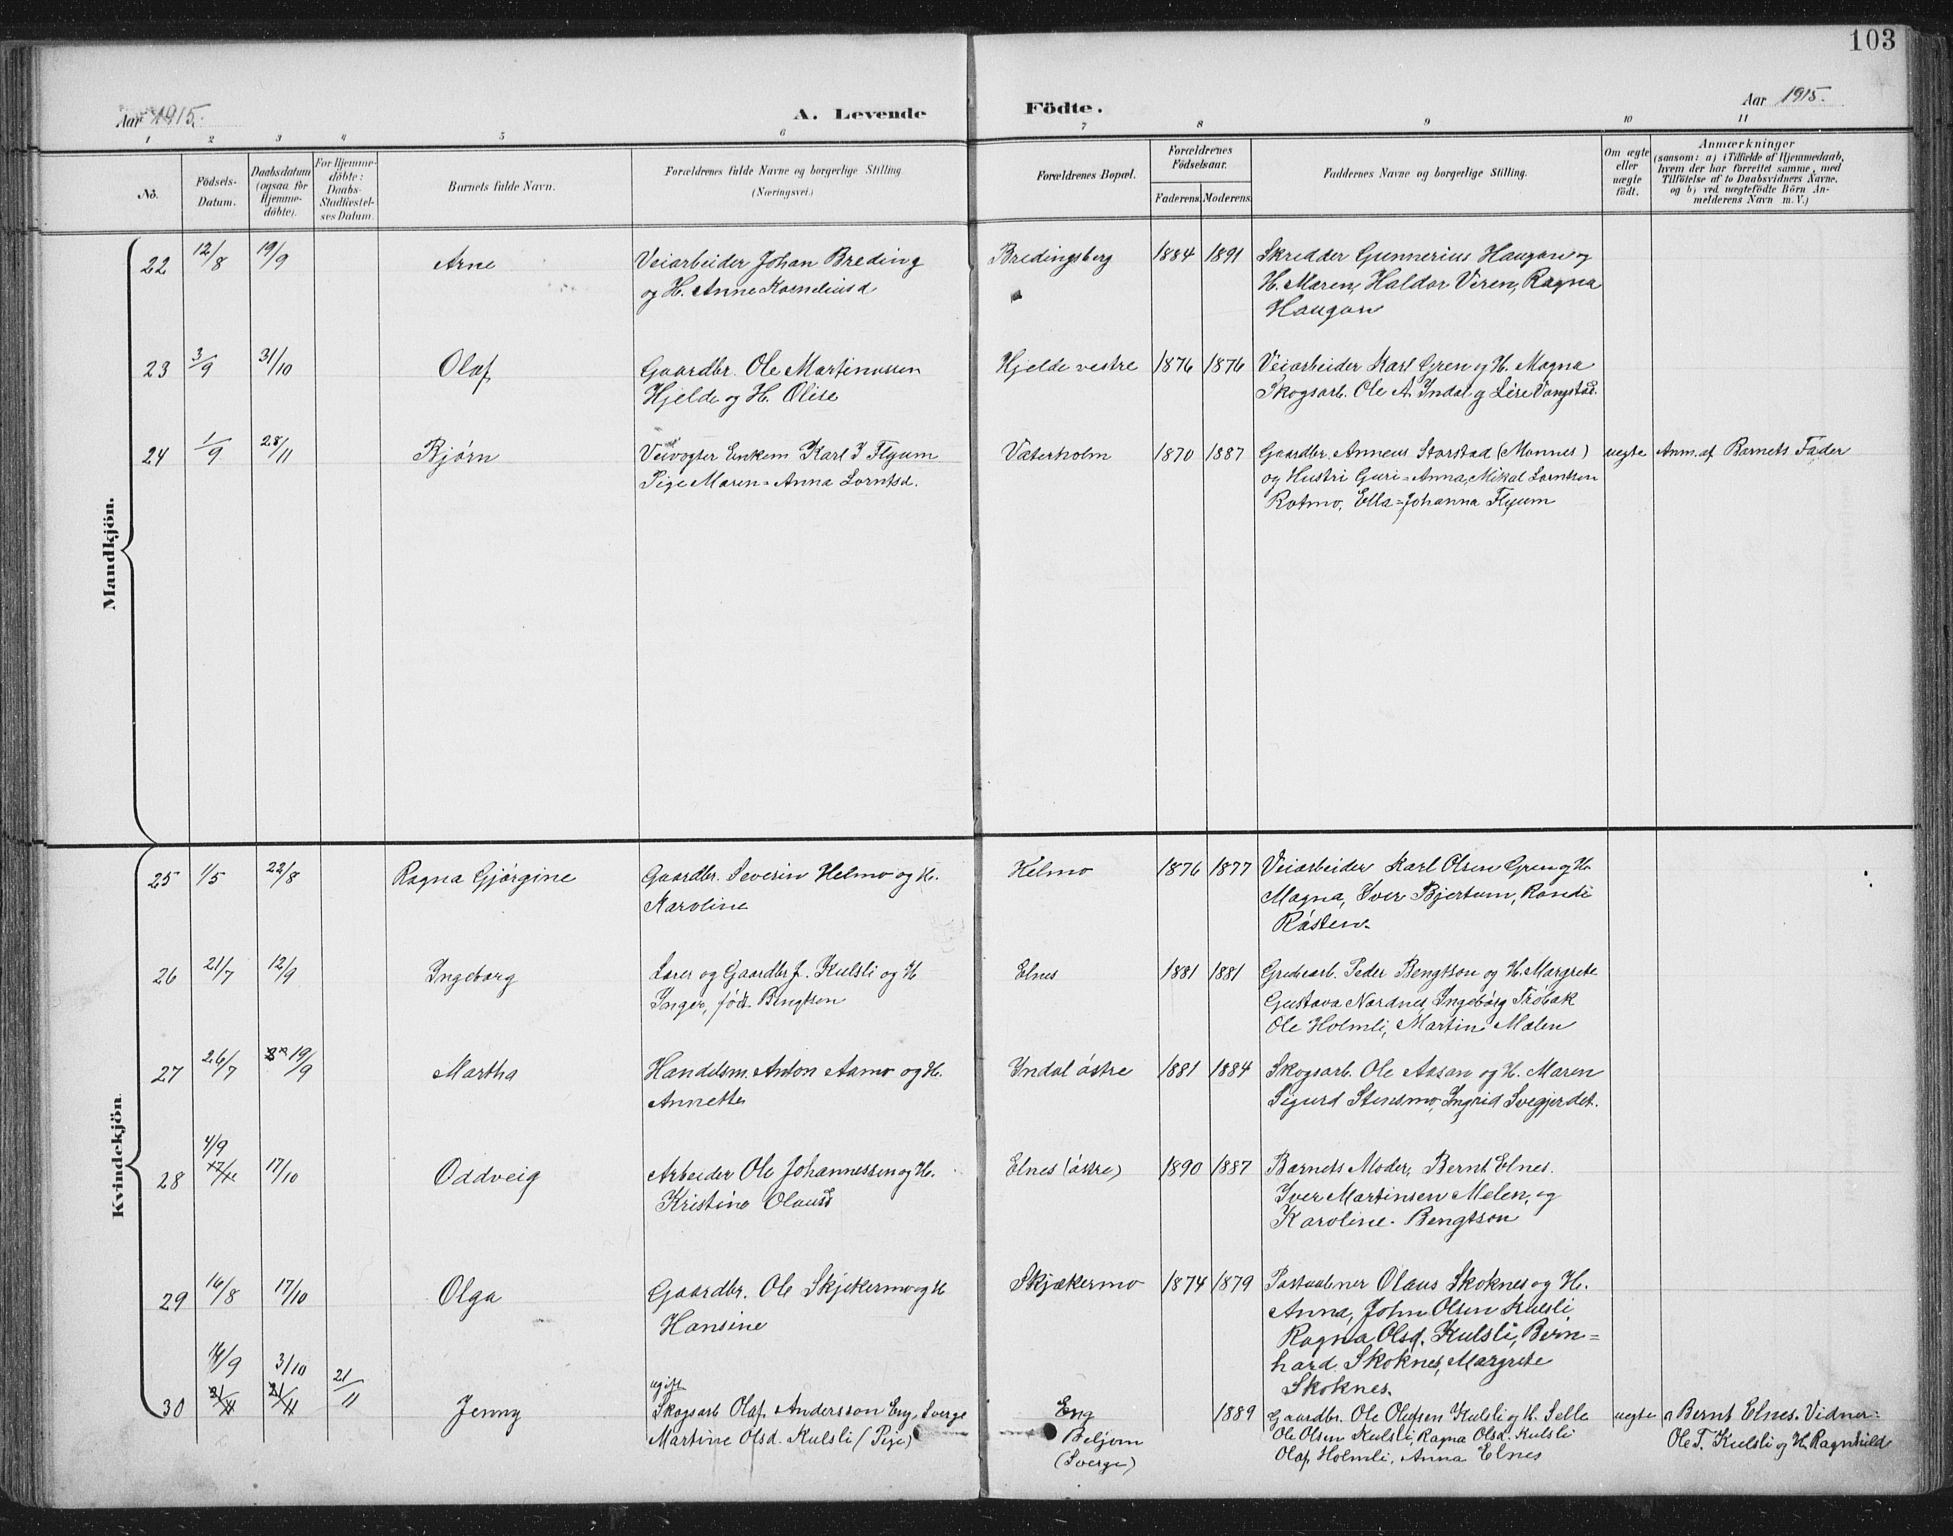 103
Aar 1915.
A. Levende Födte.
Aar 1915.
1 2 3 4 5 6 7 8 9 10 11
No.
Födsels-Datum.
Daabsdatum (ogsaa for Hjemme-döbte).
For Hjemme-döbte: Daabs-Stadfæstel-ses Datum.
Barnets fulde Navn.
Forældrenes fulde Navne og borgerlige Stilling
(Næringsvei.)
Forældrenes Bopæl.
Forældrenes Födselsaar.
Faderens. Moderens.
Faddernes Navne og borgerlige Stilling.
Om ægte eller uægte födt.
Anmærkninger
(saasom: a) i Tilfælde af Hjemmedaab,
hvem der har forrettet samme, med
Tilföielse af to Daabsvidners Navne,
og b) ved uægtefödte Börn An-
melderens Navn m. V.)
Mandkjön.
22 12/8 19/9 Arne Veiarbeider Johan Breding Bredingsberg 1884 1891 Skredder Gunnerius Haugan og
og H. Anne Korneliusd H. Maren, Haldor Veren, Ragna
Haugan
23 3/9 31/10 Olaf Gaardbr. Ole Martinussen Hjelde vestre 1876 1876 Veiarbeider Karl Gren og H. Magna
Hjelde og H. Olise Skogsarb. Ole A. Indal og Lise Vangstad.
24 1/9 28/11 Bjørn Veivogter Enkem Karl J Flyum Vaterholm 1870 1887 Gaardbr. Anneus Storstad (Monnes) uegte Anm. af Barnets Fader
Pige Maren-Anna Lorntsd. og Hustri Guri-Anna, Mikal Lorntsen
Rotmo, Ella-Johanna Flyum
Kvindekjön.
25 1/5 22/8 Ragna Gjørgine Gaardbr. Severin Helmo og H. Helmo 1876 1877 Veiarbeider Karl Olsen Gren og H.
Karoline Magna, Iver Bjertum, Randi
Råsten.
26 21/7 12/9 Ingeborg Lærer og Gaardbr J. Kulsli og H Elnes 1881 1881 Grubearb. Peder Bengtson og H. Margrete
Inger, født Bengtsen Gustava Nordnes, Ingebørg Trøbak
Ole Holmli, Martin Mælen
27 26/7 19/9 Martha Handelsm. Anton Aamo og H. Indal østre 1881 1884 Skogsarb. Ole Aasan og H. Maren
Annette Sigurd Stensmo, Ingrid Svegjerdet.
28 4/9 17/10 Oddveig Arbeider Ole Johannessen og H. Elnes (østre) 1890 1887 Barnets Moder, Bernt Elnes.
Kristine Olausd Iver Martinsen Melen, og
Karoline Bengtson
29 16/8 17/10 Olga Gaardbr. Ole Skjækermo og H Skjækermo 1874 1879 Postaabner Olaus Skoknes og H.
Hansine Anna, John Olsen Kulsli
Ragna Olsd. Kulsli, Bern=
hard Skoknes, Margrete
Skoknes.
14/9 3/10
ugift
30 21/11 21/11 21/11 Jenny Skogsarb Olaf Andersson Eng, Sverge Eng 1889 Gaardbr. Ole Olufsen Kulsli og H. Selle uegte a Bernt Elnes. Vidner:
Martine Olsd. Kulsli (Pige) Beljom Ole Olsen Kulsli, Ragna Olsd. Kulsli Ole T. Kulsli og H. Ragnhild
(Sverge) Olaf Holmli, Anna Elnes